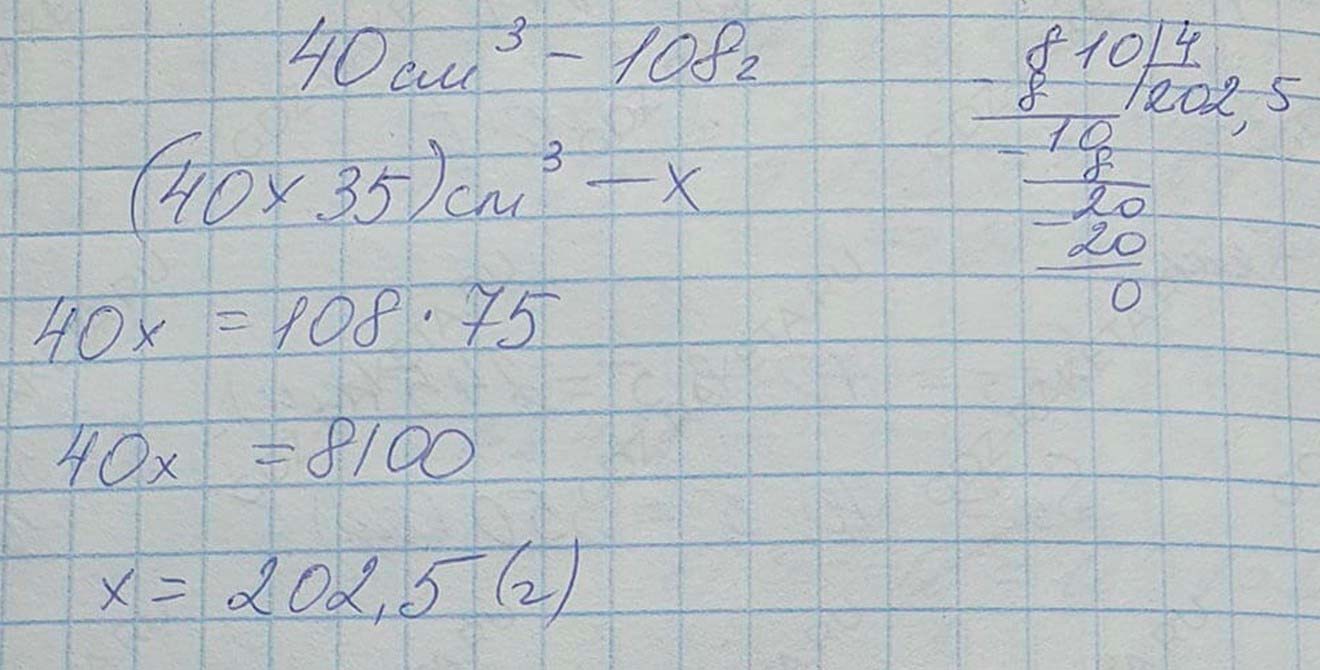 40 см³ – 108 г
(40 x 35) см³ – x
40x = 108 · 75
40x = 8100
x = 202,5 (г)
810 | 4
- 8 | 202,5
- 10
8
- 20
20
0